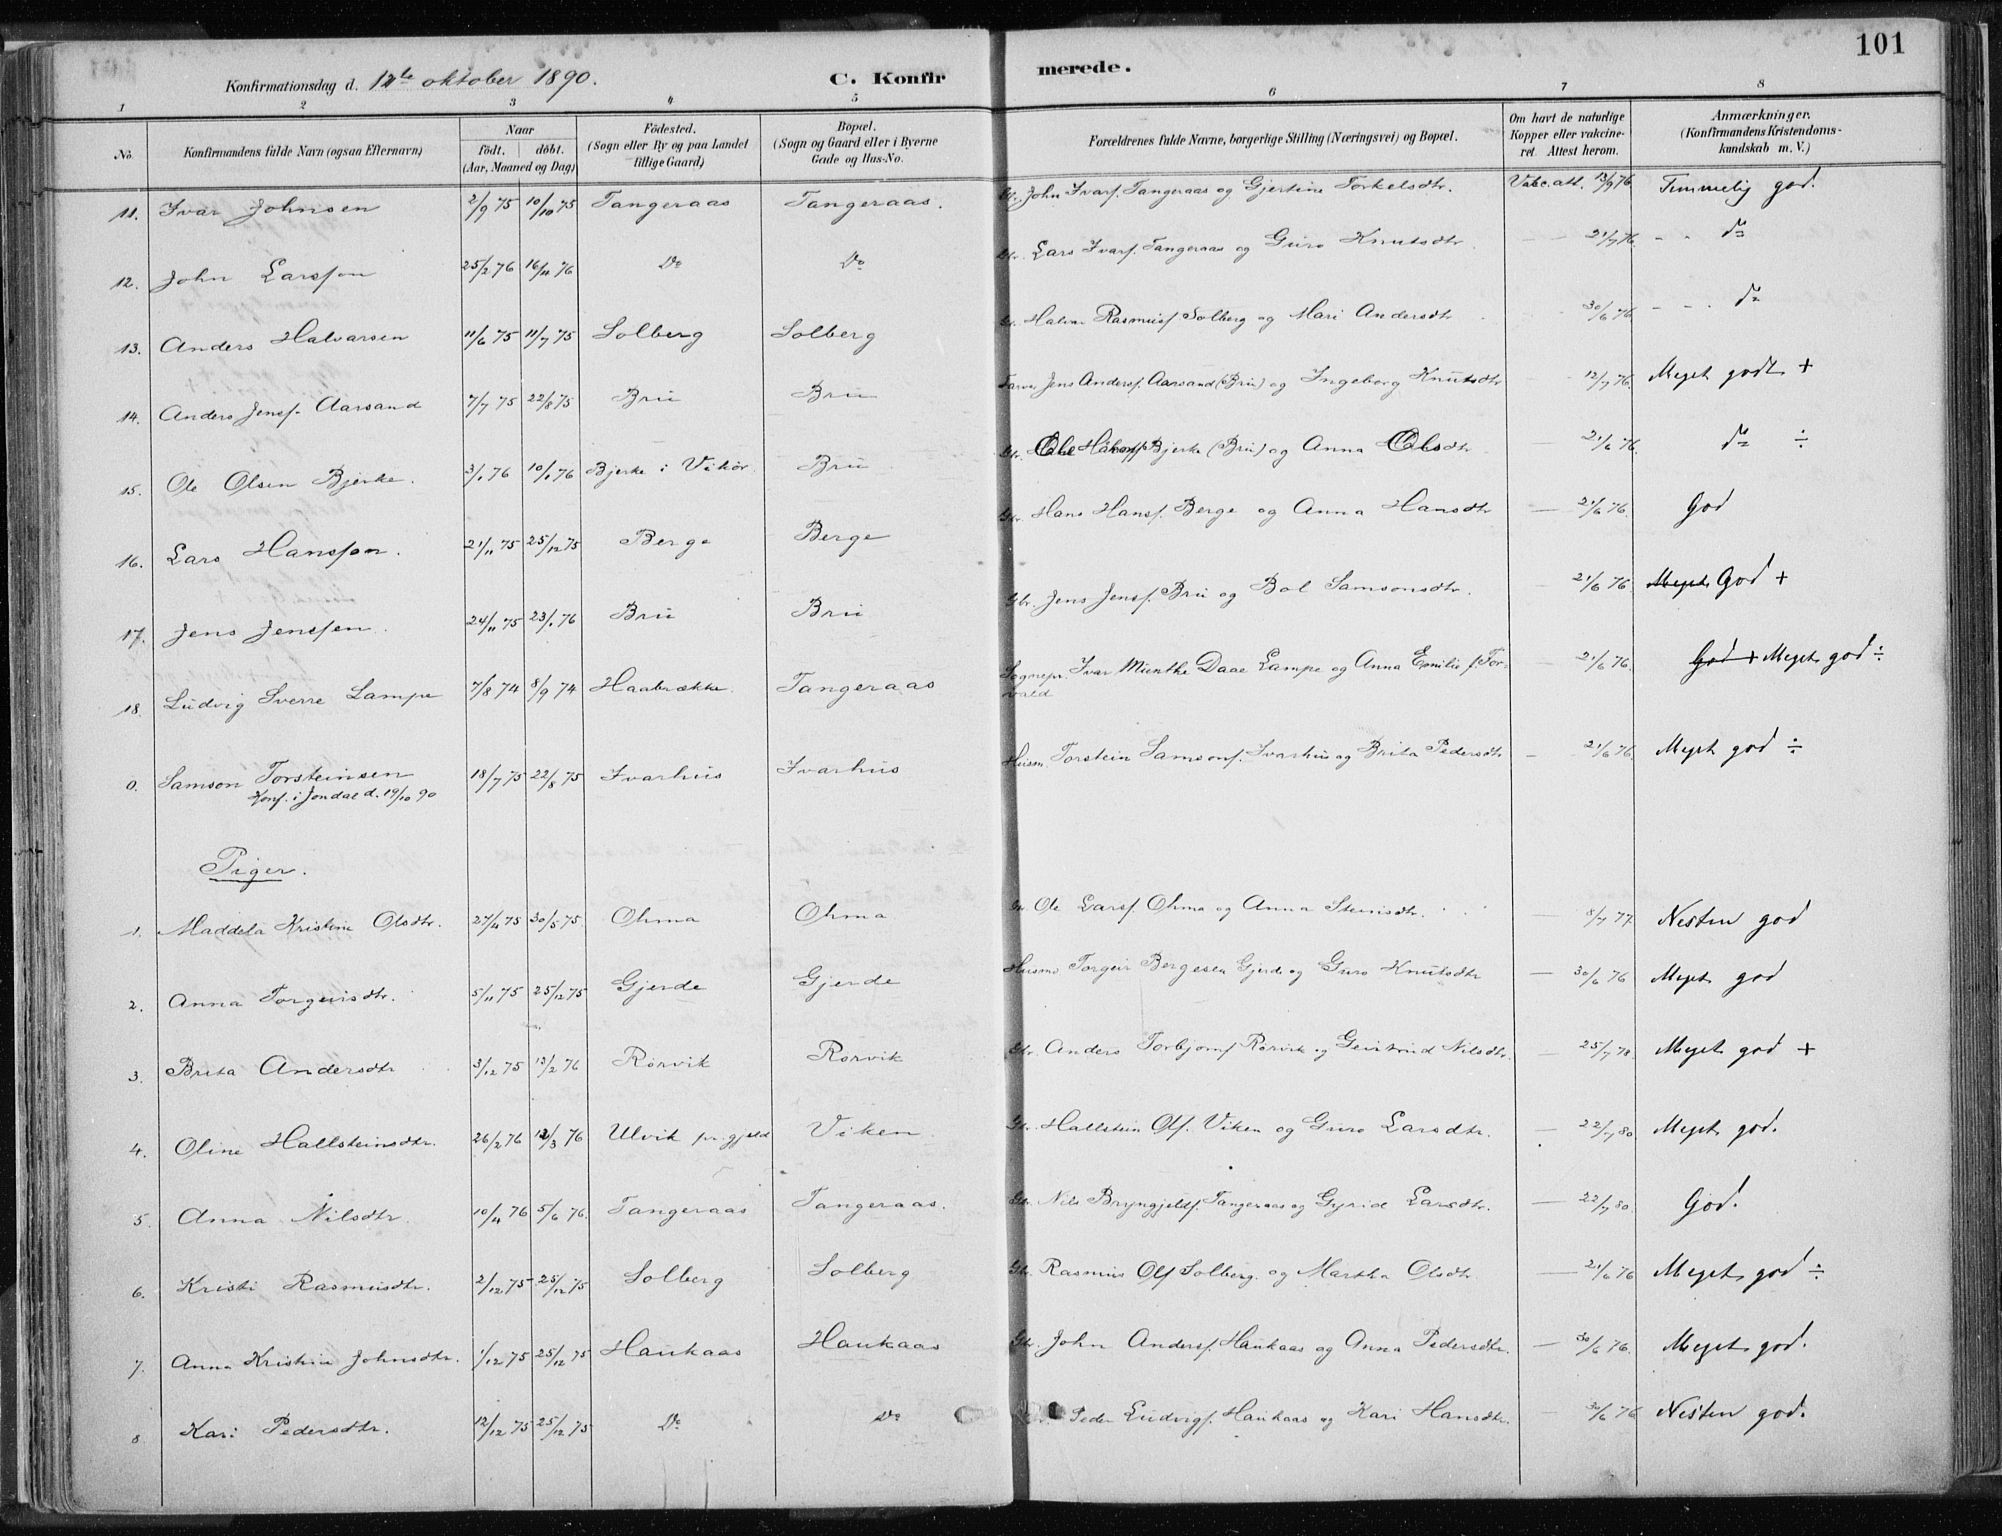 101
Konfirmationsdag d. 12te oktober 1890. C. Konfirmerede.
1 2 3 4 5 6 7 8
No. Konfirmandens fulde Navn (ogsaa Efternavn) Naar født. døbt. (Aar, Maaned og Dag) Fødested. (Sogn eller By og paa Landet tillige Gaard) Bopæl. (Sogn og Gaard eller i Byerne Gade og Hus-No. Forældrenes fulde Navne, borgerlige Stilling (Næringsvei) og Bopæl. Om havt de naturlige Kopper eller vakcineret. Attest herom. Anmærkninger. (Konfirmandens Kristendomskundskab m. V.)
11. Ivar Johnsen 2/9 75 10/10 75 Tangeraas Tangeraas. Gbr. John Ivarf. Tangeraas og Gjertine Torkelsdtr. Vakc. att. 13/9 76 Temmelig god.
12. John Larsson 25/2 76 16/4 76 Do Do Gbr. Lars Ivarf. Tangeraas og Guro Knutsdtr. — — 21/7 76. - - do
13. Anders Halvarsen 11/6 75 11/7 75 Solberg Solberg Gbr. Halvar Rasmusf Solberg og Mari Andersdtr 30/6 76. - - do
14. Anders Jensf. Aarsand 7/7 75 22/8 75 Brü Brü Farver Jens Andersf. Aarsand (Brü) og Ingeborg Knutsdtr 12/7 76. Meget godt +
15. Ole Olsen Bjerke. 3/1 76 10/1 76 Bjerke i Vikør Brü Gbr. Ole Håkonf Bjerke (Brü) og Anna Olsdtr — 21/6 76. do ÷
16. Lars Hansson. 21/11 75 25/12 75 Berge Berge Gbr. Hans Hansf. Berge og Anna Hansdtr — 21/6 76. God
17. Jens Jensen. 24/11 75 23/1 76 Brü Brü Gbr. Jens Jensf. Brü og Bol Samsonsdtr. — 21/6 76. Meget God +
18. Ludvig Sverre Lampe 7/8 74 8/9 74 Haabrække. Tangeraas Sognepr. Ivar Mienthe Daae Lampe og Anna Emilie f. Torvald — 21/6 76. God + Meget god ÷
0. Samson Torsteinsen 18/7 75 22/8 75 Ivarhus Ivarhus Husm. Torstein Samsonf. Ivarhus og Brita Pedersdtr — 21/6 76. Meget god ÷
Konf. i Jondal d. 19/10 90
Piger.
1. Maddela Kristine Olsdtr. 27/4 75 30/5 75 Ohma Ohma Gbr. Ole Larsf. Ohma og Anna Steinsdtr. — 8/7 77. Nesten god
2. Anna Torgeirsdtr. 5/11 75 25/12 75 Gjerde Gjerde Husmd Torgeir Bergesen Gjerde og Guro Knutsdtr — 30/6 76 Meget god
3. Brita Andersdtr 3/12 75 13/2 76 Rørvik Rørvik Gbr. Anders Torbjørnf Rørvik og Geirtrud Nilsdtr. — 25/7 78 Meget god +
4. Oline Hallsteinsdtr. 26/2 76 12/3 76 Ulvik pr.gjeld Viken Gbr. Hallstein Olf. Viken og Guro Larsdtr. — 22/7 80 Meget god.
5. Anna Nilsdtr. 10/4 76 5/6 76. Tangeraas Tangeraas. Gbr. Nils Bryngjeldf. Tangeraas og Gyrid Larsdtr. — 22/7 80. God.
6. Kristi Rasmusdtr. 2/12 75 25/12 75 Solberg Solberg Gbr. Rasmus Olf Solberg og Martha Olsdtr — 21/6 76 Meget god ÷
7. Anna Kristine Johnsdtr. 1/12 75 25/12 75 Haukaas Haukaas Gbr. John Andersf. Haukaas og Anna Pedersdtr. — 30/6 76. Meget god.
8. Kari Pedersdtr. 12/12 75 25/12 75 Do Do Peder Ludvigf. Haukaas og Kari Hansdtr. — 30/6 76 Nesten god.